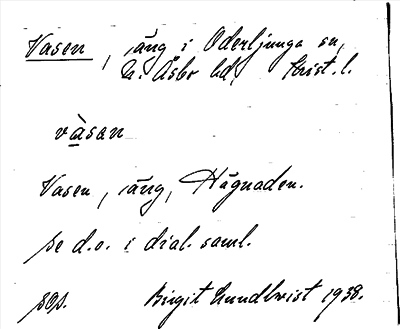 Vasen, äng i Oderljunga sn,
N. Åsbo hd, Krist. l.
vàsan
Vasen, äng, Hägnaden.
se d.o. i dial. saml.
sep. Birgit Lundkvist 1938.